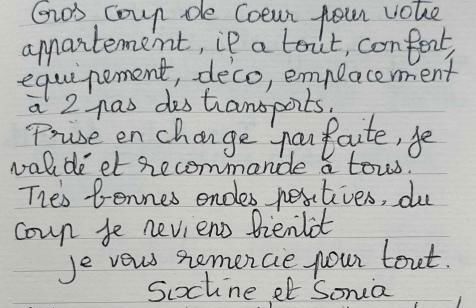 Gros coup de coeur pour votre
appartement, il a tout, confort,
équipement, déco, emplacement
à 2 pas des transports.
Prise en charge parfaite, je
validé et recommande à tous.
Très bonnes ondes positives, du
coup je reviens bientôt
je vous remercie pour tout.
Sixtine et Sonia